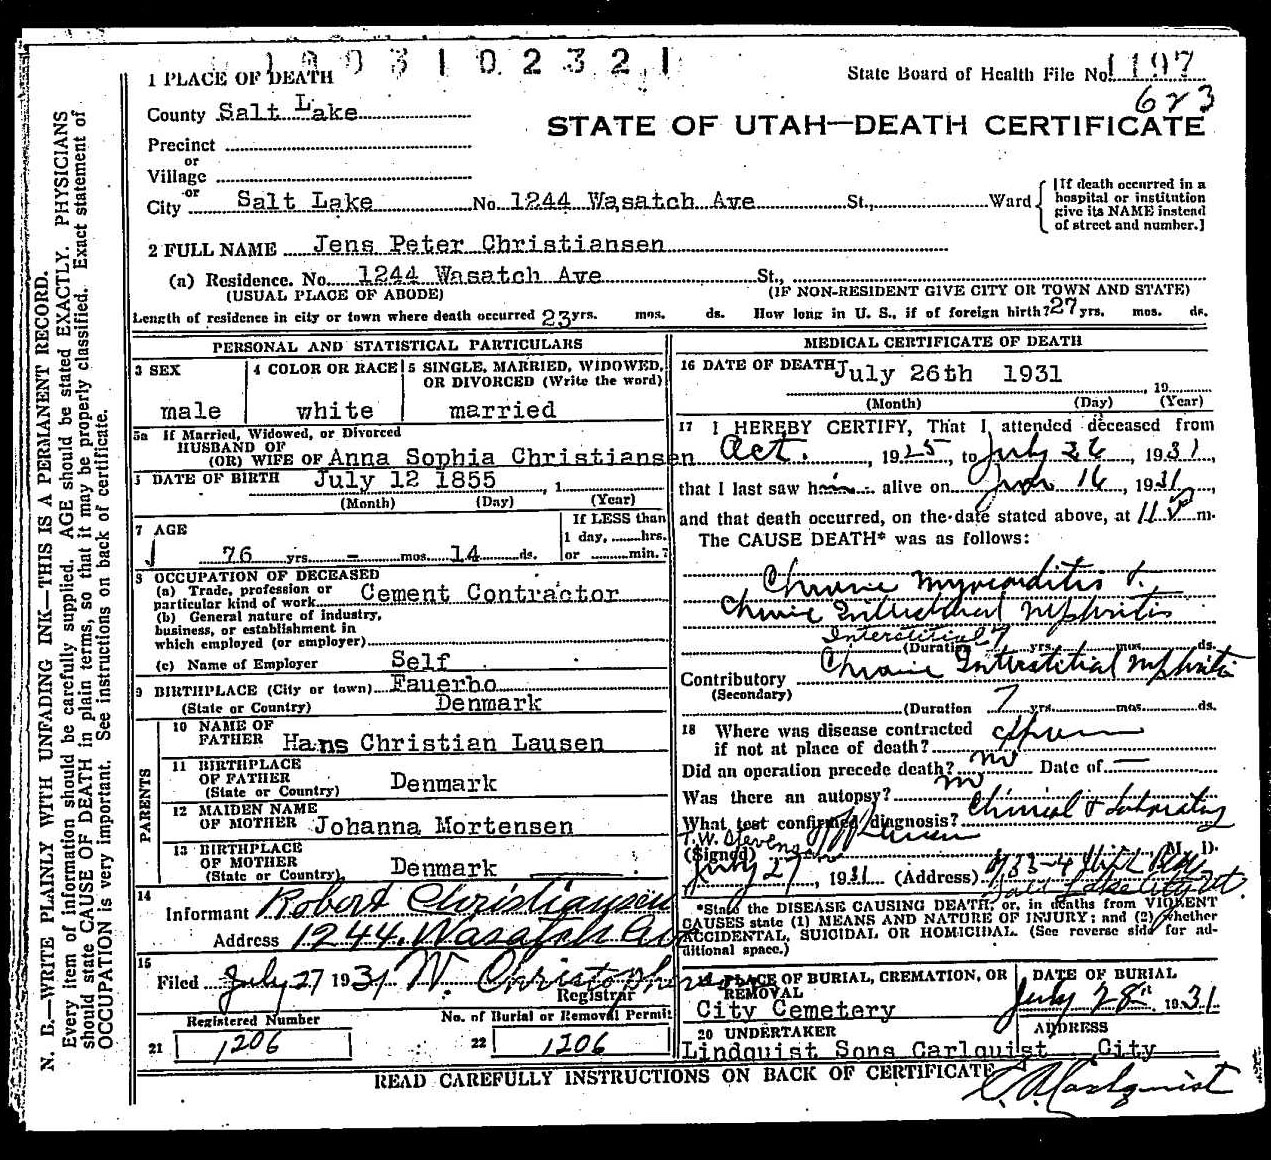 1003102321
1 PLACE OF DEATH
State Board of Health File No. 1197
623
County Salt Lake
STATE OF UTAH—DEATH CERTIFICATE
Precinct
or
Village
or
City Salt Lake No. 1244 Wasatch Ave St., Ward
[If death occurred in a hospital or institution give its NAME instead of street and number.]
2 FULL NAME Jens Peter Christiansen
(a) Residence. No. 1244 Wasatch Ave St.,
(USUAL PLACE OF ABODE) (IF NON-RESIDENT GIVE CITY OR TOWN AND STATE)
Length of residence in city or town where death occurred 23 yrs. mos. ds. How long in U. S., if of foreign birth? 27 yrs. mos. ds.
PERSONAL AND STATISTICAL PARTICULARS
3 SEX
male
4 COLOR OR RACE
white
5 SINGLE, MARRIED, WIDOWED,
OR DIVORCED (Write the word)
married
5a If Married, Widowed, or Divorced
HUSBAND OF
(OR) WIFE OF Anna Sophia Christiansen
DATE OF BIRTH July 12 1855, 1
(Month) (Day) (Year)
7 AGE
76 yrs. - mos. 14 ds.
If LESS than
1 day, hrs.
or min.?
8 OCCUPATION OF DECEASED
(a) Trade, profession or
particular kind of work Cement Contractor
(b) General nature of industry,
business, or establishment in
which employed (or employer)
(c) Name of Employer Self
9 BIRTHPLACE (City or town) Fauerbo
(State or Country) Denmark
PARENTS
10 NAME OF
FATHER Hans Christian Lausen
11 BIRTHPLACE
OF FATHER
(State or Country) Denmark
12 MAIDEN NAME
OF MOTHER Johanna Mortensen
13 BIRTHPLACE
OF MOTHER
(State or Country) Denmark
14
Informant Robert Christiansen
Address 1244 Wasatch Ave
15
Filed July 27 1931 W. Christopherson
Registrar
Registered Number
21 1206
No. of Burial or Removal Permit
22 1206
MEDICAL CERTIFICATE OF DEATH
16 DATE OF DEATH July 26th 1931 19
(Month) (Day) (Year)
17 I HEREBY CERTIFY, That I attended deceased from
Oct., 1925, to July 26, 1931,
that I last saw him alive on 16, 1931,
and that death occurred, on the date stated above, at 11 m.
The CAUSE DEATH* was as follows:
Chronic Myocarditis &
Chronic Interstitial Nephritis
Interstitial
(Duration 7 yrs. mos. ds.
Contributory Chronic Interstitial Nephritis
(Secondary)
(Duration 7 yrs. mos. ds.
18 Where was disease contracted
if not at place of death?
Did an operation precede death? no Date of —
Was there an autopsy? no
What test confirmed diagnosis? Clinical & Laboratory
T.W. Stevenson
(Signed) M. D.
July 27, 1931 (Address)
Salt Lake City Ut.
*State the DISEASE CAUSING DEATH, or, in deaths from VIOLENT
CAUSES state (1) MEANS AND NATURE OF INJURY; and (2) whether
ACCIDENTAL, SUICIDAL OR HOMICIDAL. (See reverse side for ad-
ditional space.)
PLACE OF BURIAL, CREMATION, OR
REMOVAL
City Cemetery
DATE OF BURIAL
July 28th 1931
20 UNDERTAKER
Lindquist Sons Carlquist
ADDRESS
City
READ CAREFULLY INSTRUCTIONS ON BACK OF CERTIFICATE
Carlquist
N. B.—WRITE PLAINLY WITH UNFADING INK—THIS IS A PERMANENT RECORD.
Every item of information should be carefully supplied. AGE should be stated EXACTLY. PHYSICIANS
should state CAUSE OF DEATH in plain terms, so that it may be properly classified. Exact statement of
OCCUPATION is very important. See instructions on back of certificate.